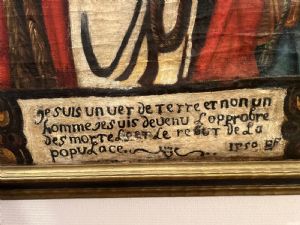 je suis un ver de terre et non un
homme je suis devenu l'opprobre
des mortels et le rebut de la
populace
1750